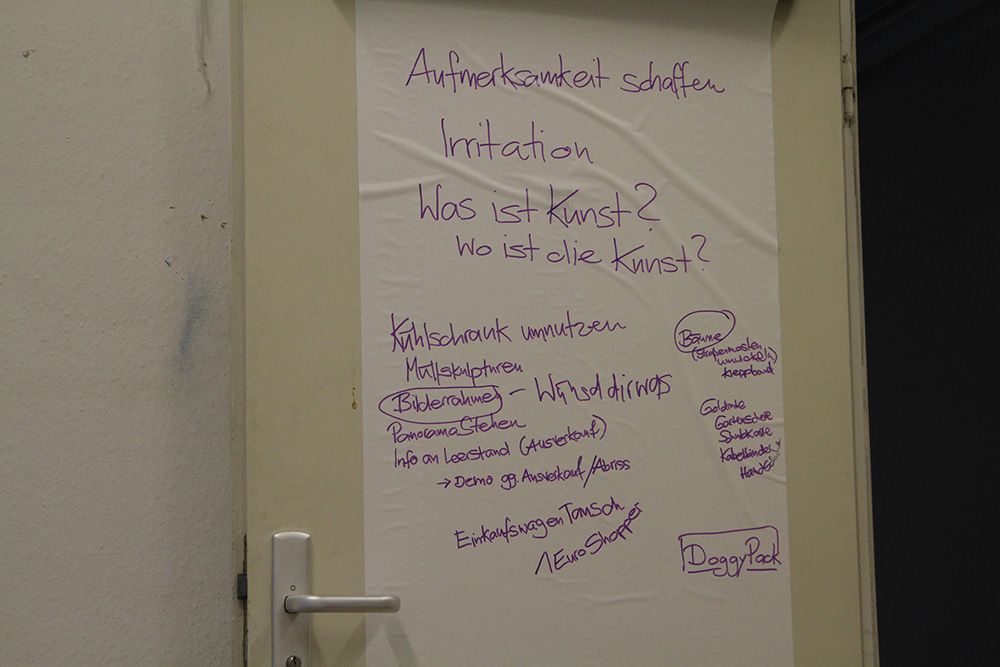 Aufmerksamkeit schaffen
Irritation
Was ist Kunst?
Wo ist die Kunst?
Kühlschrank umnutzen
Müllskulpturen
Bilderrahmen - Wünsch dir was
PanoramaStehen
Info an Leerstand (Ausverkauf)
→ Demo gg. Ausverkauf/Abriss
EinkaufswagenTausch
1 Euro Shopper
Bäume
(Straßenmasten
umwickeln)
Kreppband
Gartenschere
Schubkarre
Kabelbinder
DoggyPack